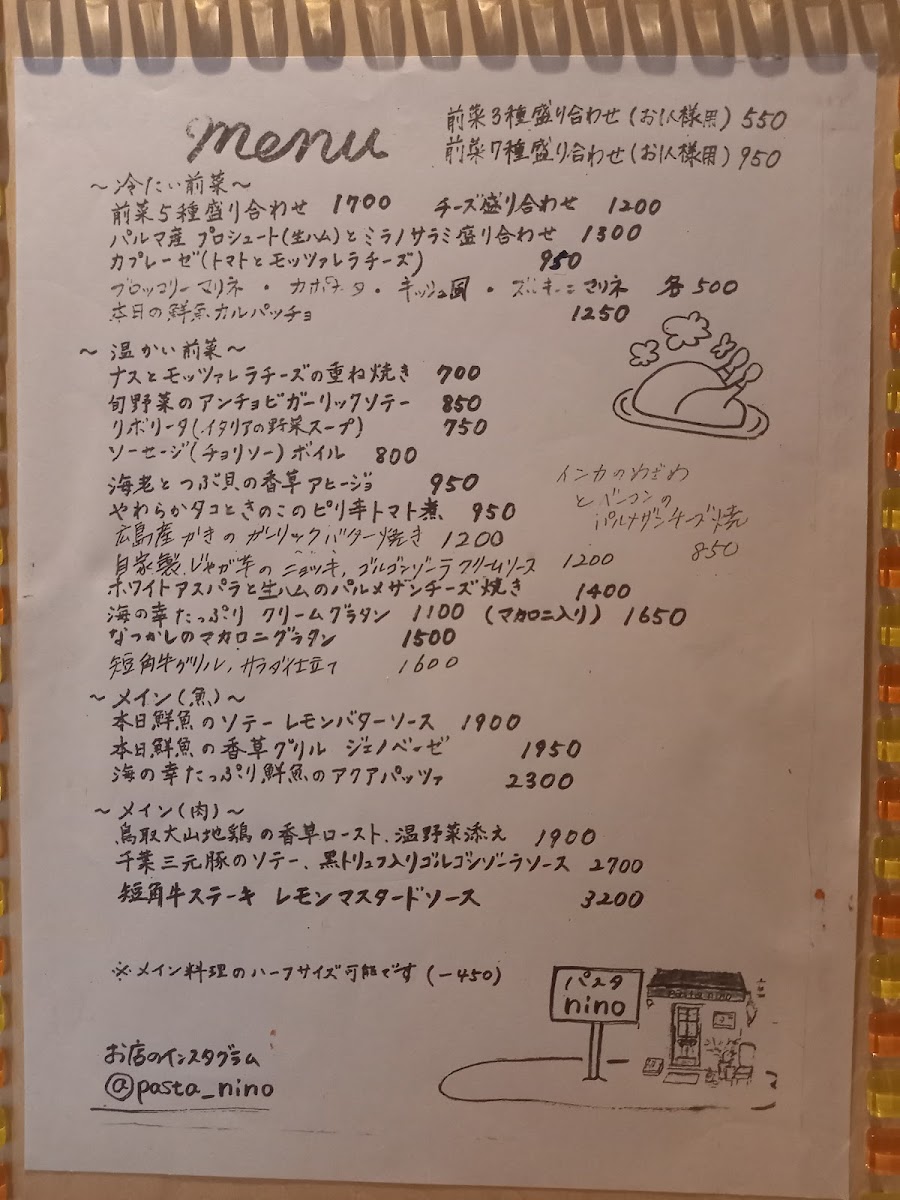 menu
前菜3種盛り合わせ(お1人様用) 550
前菜7種盛り合わせ(お1人様用) 950
～冷たい前菜～
前菜5種盛り合わせ 1700 チーズ盛り合わせ 1200
パルマ産 プロシュート(生ハム)とミラノサラミ盛り合わせ 1300
カプレーゼ(トマトとモッツァレラチーズ) 950
ブロッコリーマリネ ・ カポナータ ・ キッシュ風 ・ ズッキーニマリネ 各500
本日の鮮魚カルパッチョ 1250
～ 温かい前菜～
ナスとモッツァレラチーズの重ね焼き 700
旬野菜のアンチョビガーリックソテー 850
リボリータ(イタリアの野菜スープ) 750
ソーセージ(チョリソー)ボイル 800
海老とつぶ貝の香草アヒージョ 950
やわらかタコときのこのピリ辛トマト煮 950
広島産かきのガーリックバター焼き 1200
自家製じゃが芋のニョッキ、ゴルゴンゾーラクリームソース 1200
ホワイトアスパラと生ハムのパルメザンチーズ焼き 1400
海の幸たっぷり クリームグラタン 1100 (マカロニ入り) 1650
なつかしのマカロニグラタン 1500
短角牛グリル、サラダ仕立て 1600
インカのめざめ
とベーコンの
パルメザンチーズ焼
850
～メイン(魚)～
本日鮮魚のソテー レモンバターソース 1900
本日鮮魚の香草グリル ジェノベーゼ 1950
海の幸たっぷり鮮魚のアクアパッツァ 2300
～メイン(肉)～
鳥取大山地鶏の香草ロースト、温野菜添え 1900
千葉三元豚のソテー、黒トリュフ入りゴルゴンゾーラソース 2700
短角牛ステーキ レモンマスタードソース 3200
※メイン料理のハーフサイズ可能です(-450)
パスタ
nino
お店のインスタグラム
@pasta_nino